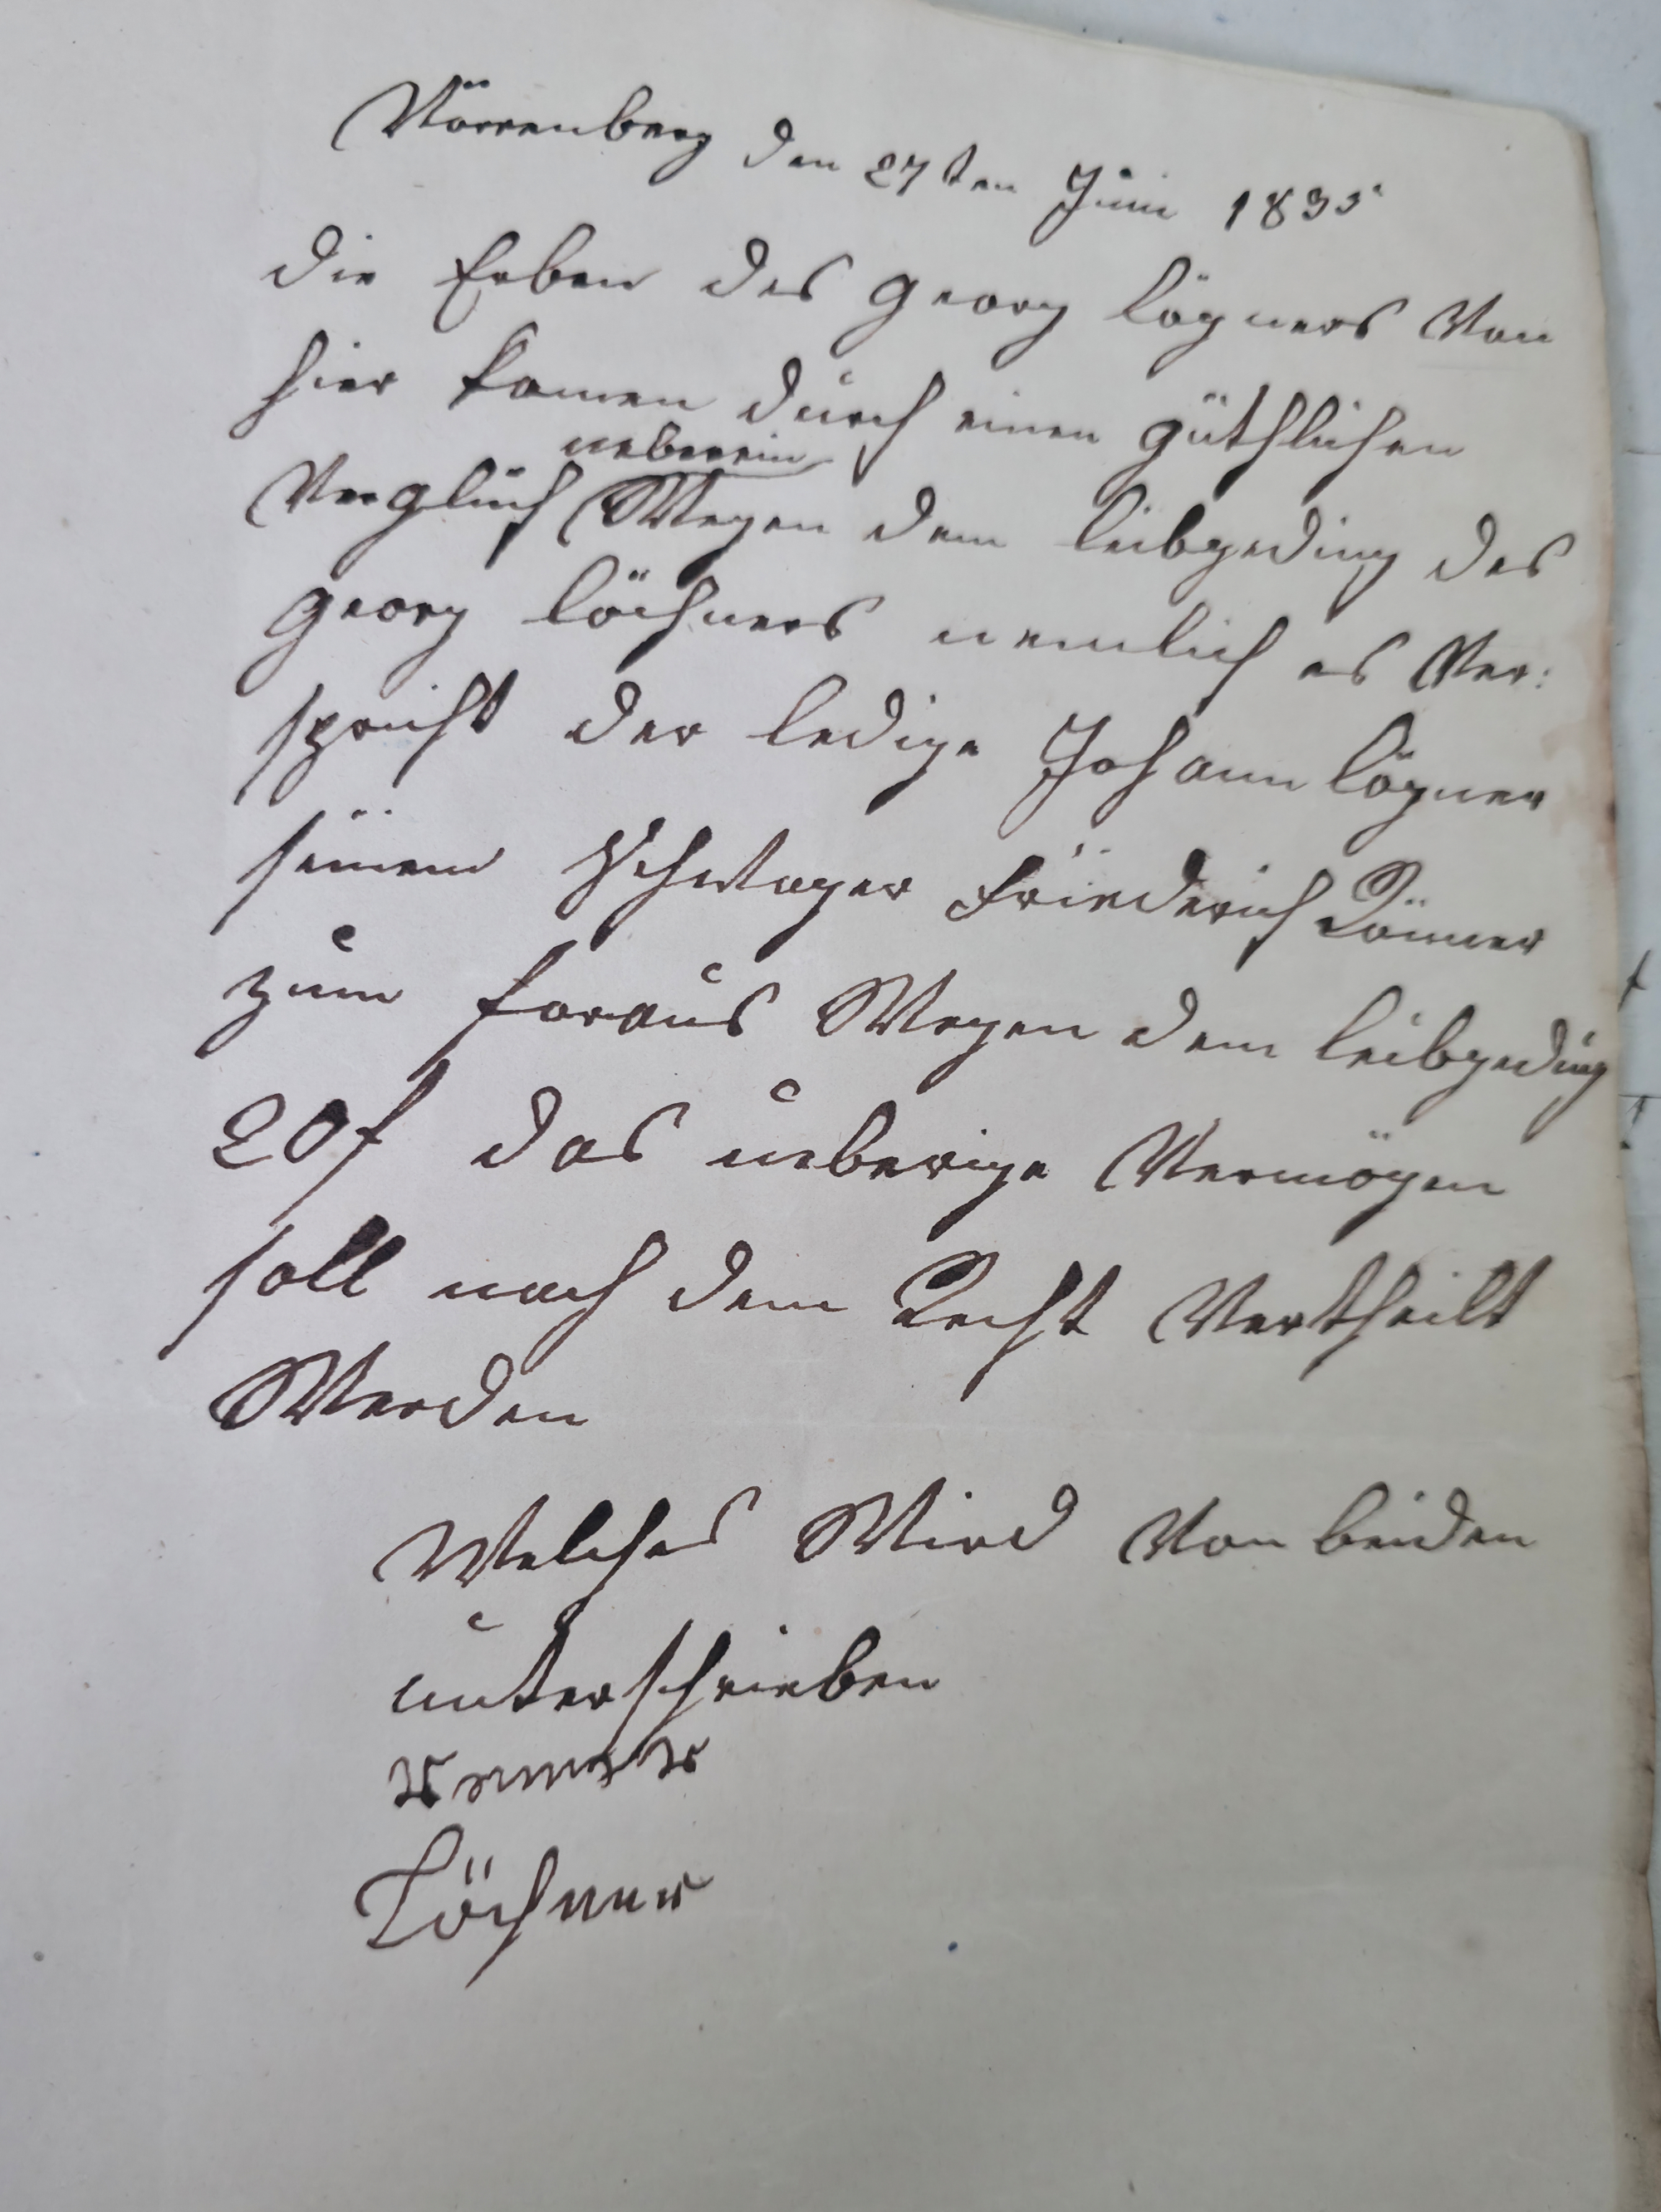 Vörrenberg den 27ten Juni 1835
die Erben des Georg Lögners Von
hier kamen durch einen güthlichen
ueberein
Verglich Wegen dem Leibgeding des
Georg Löchners nemlich es Ver:
spricht der ledige Johann Lögner
seinem Schwager Friederich Römer
zum foraus Wegen dem Leibgeding
20 f das ueberige Vermögen
soll nach dem Recht Vertheilt
Werden
Welches Wird Von beiden
unterschrieben
Löchner